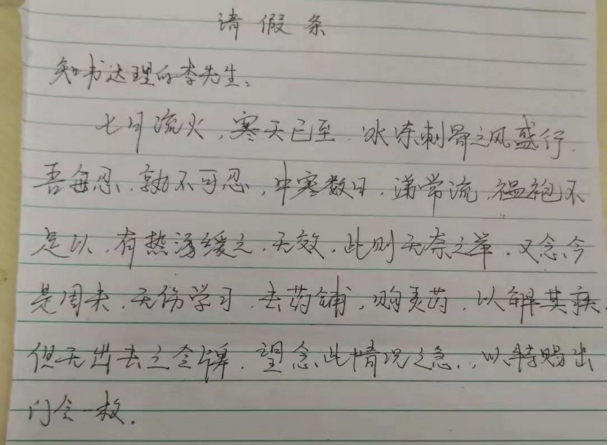 请假条
知书达理的李先生:
七月流火,寒天已至.冰冻刺骨之风盛行.
吾每忍,孰不可忍,中寒数日,涕常流,缊袍不
足以,有热汤缓之,无效,此则无奈之举,又念今
是周末,无伤学习,去药铺,购灵药,以解其疾,
但无出去之令牌,望念此情况之急,以特赐出
门令一枚.